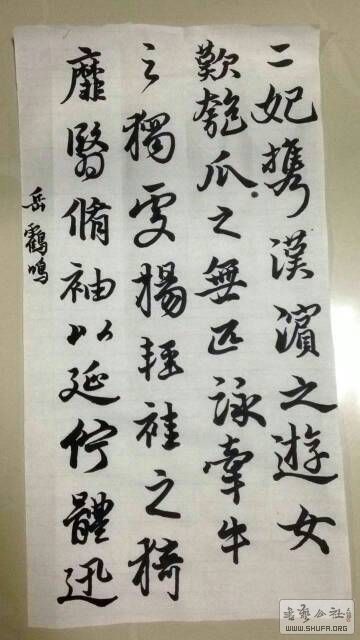 二妃携漢濱之遊女
歎匏瓜之無匹詠牽牛
之獨處揚輕袿之猗
靡翳脩袖以延佇體迅
岳鸖鳴
書藝公社
WWW.SHUFA.ORG